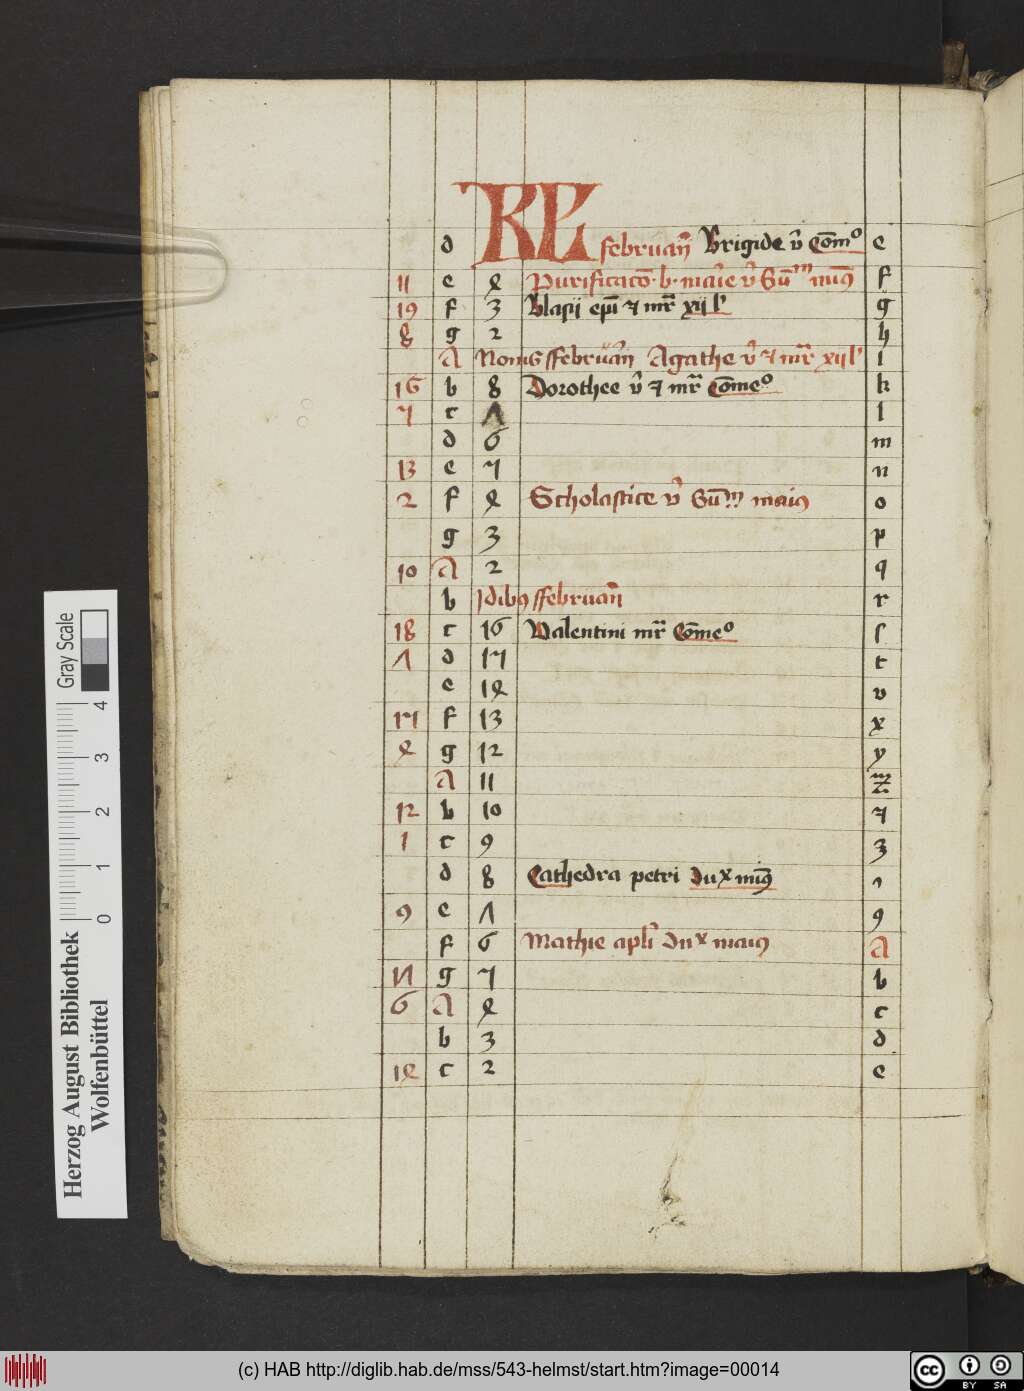 d KL februarii Brigide v̄ Com̄o e
11 e 4 Purificaco b marie v̄ Sum̄ minꝰ f
19 f 3 Blasii ep̄i ⁊ mr̄ xij l' g
8 g 2 h
A Nonis ffebruarii Agathe v̄ ⁊ mr̄ xij l' i
16 b 8 Dorothee v̄ ⁊ mr̄ Com̄eo k
7 c 5 l
d 6 m
13 e 7 n
2 f 4 Scholastice v̄ Sum̄ maiꝰ o
g 3 p
10 A 2 q
b Idibꝰ ffebruarii r
18 c 16 Valentini mr̄ Com̄eo s
5 d 17 t
e 14 v
15 f 13 x
4 g 12 y
A 11 z
12 b 10 ⁊
1 c 9 3
d 8 Cathedra petri dux minꝰ
9 e 5 9
f 6 Mathie apl'i dux maiꝰ A
17 g 7 b
6 A 4 c
b 3 d
14 c 2 e
Gray Scale
0 1 2 3 4
Herzog August Bibliothek
Wolfenbüttel
(c) HAB http://diglib.hab.de/mss/543-helmst/start.htm?image=00014
cc BY SA